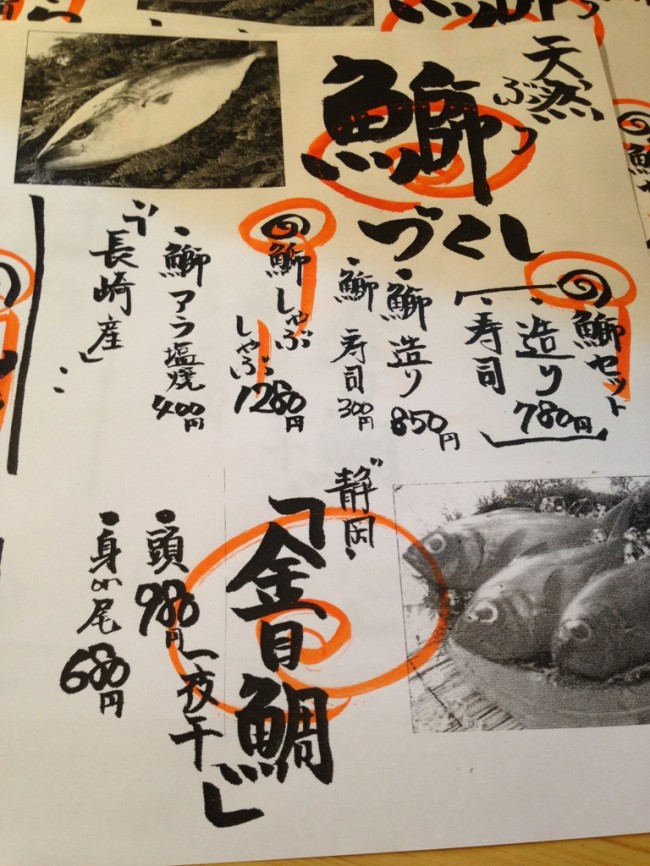 天然
ぶり
鰤
づくし
鰤セット
・造り
・寿司
780円
・鰤造り 850円
・鰤寿司 300円
鰤しゃぶ
しゃぶ 1280円
・鰤アラ塩焼 400円
"長崎産"
"静岡"
「金目鯛」
一夜干
・頭 980円
・身or尾 680円